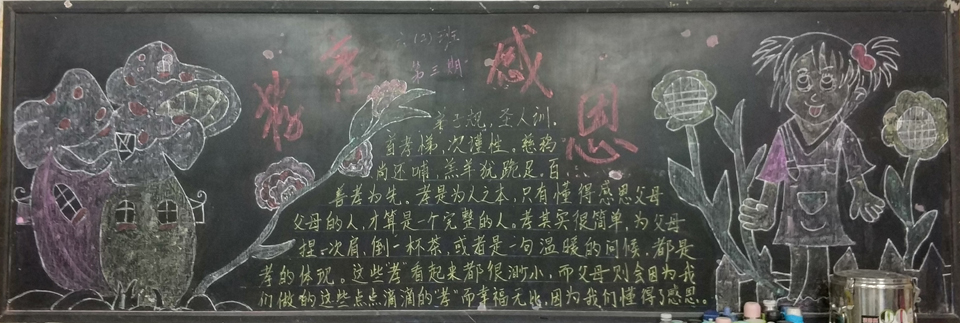 六(2)班
第三期
孝亲感恩
弟子规,圣人训,
首孝悌,次谨信。慈鸦
尚还哺,羔羊犹跪足。百
善孝为先。孝是为人之本,只有懂得感恩父母
父母的人,才算是一个完整的人。孝其实很简单,为父母
捏一次肩,倒一杯茶,或者是一句温暖的问候,都是
孝的体现。这些"孝"看起来都很渺小,而父母则会因为我
们做的这些点点滴滴的"孝"而幸福无比,因为我们懂得了感恩。